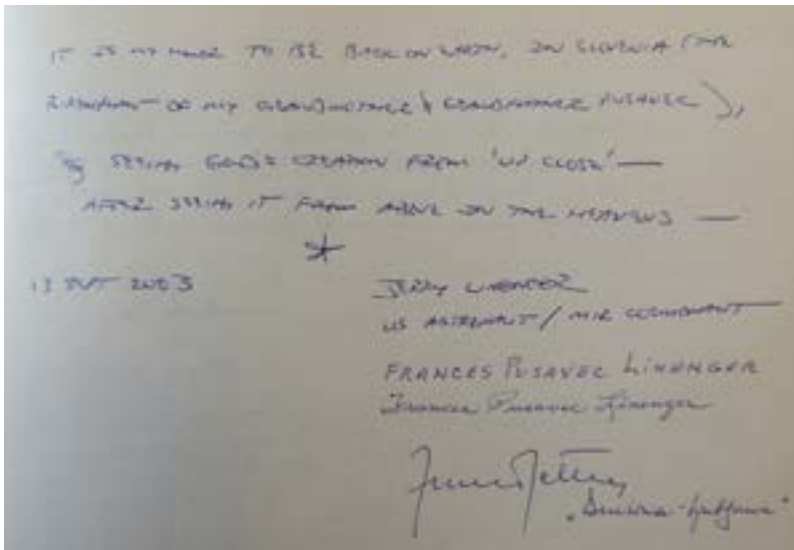 IT IS MY HONOR TO BE BACK ON EARTH, IN SLOVENIA (THE
BIRTHPLACE OF MY GRANDMOTHER & GRANDFATHER PUSAVEC),
SEEING GOD'S CREATION FROM 'UP CLOSE' —
AFTER SEEING IT FROM ABOVE IN THE HEAVENS —
13 SEPT 2003
JERRY LINENGER
US ASTRONAUT / MIR COSMONAUT
FRANCES PUSAVEC LINENGER
Frances Pusavec Linenger